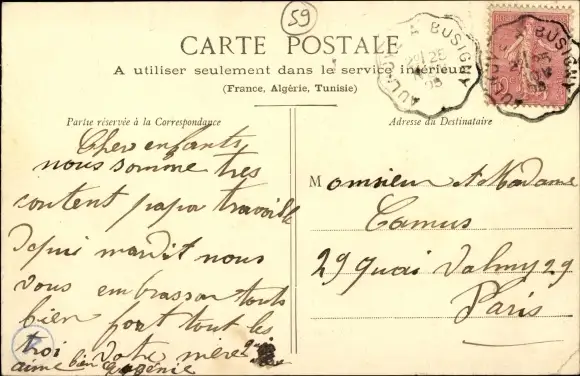 59
CARTE POSTALE
A utiliser seulement dans le service intérieur
(France, Algérie, Tunisie)
AULNOYE A BUSIGNY
25
05
Partie réservée à la Correspondance
Adresse du Destinataire
Cher enfants
nous somme tres
content papa travaille
depuis mardit nous
vous embrasson touts
bien fort tout les
troi votre mère qui
aime bien Eugénie
Monsieur et Madame
Camus
29 quai Valmy 29
Paris